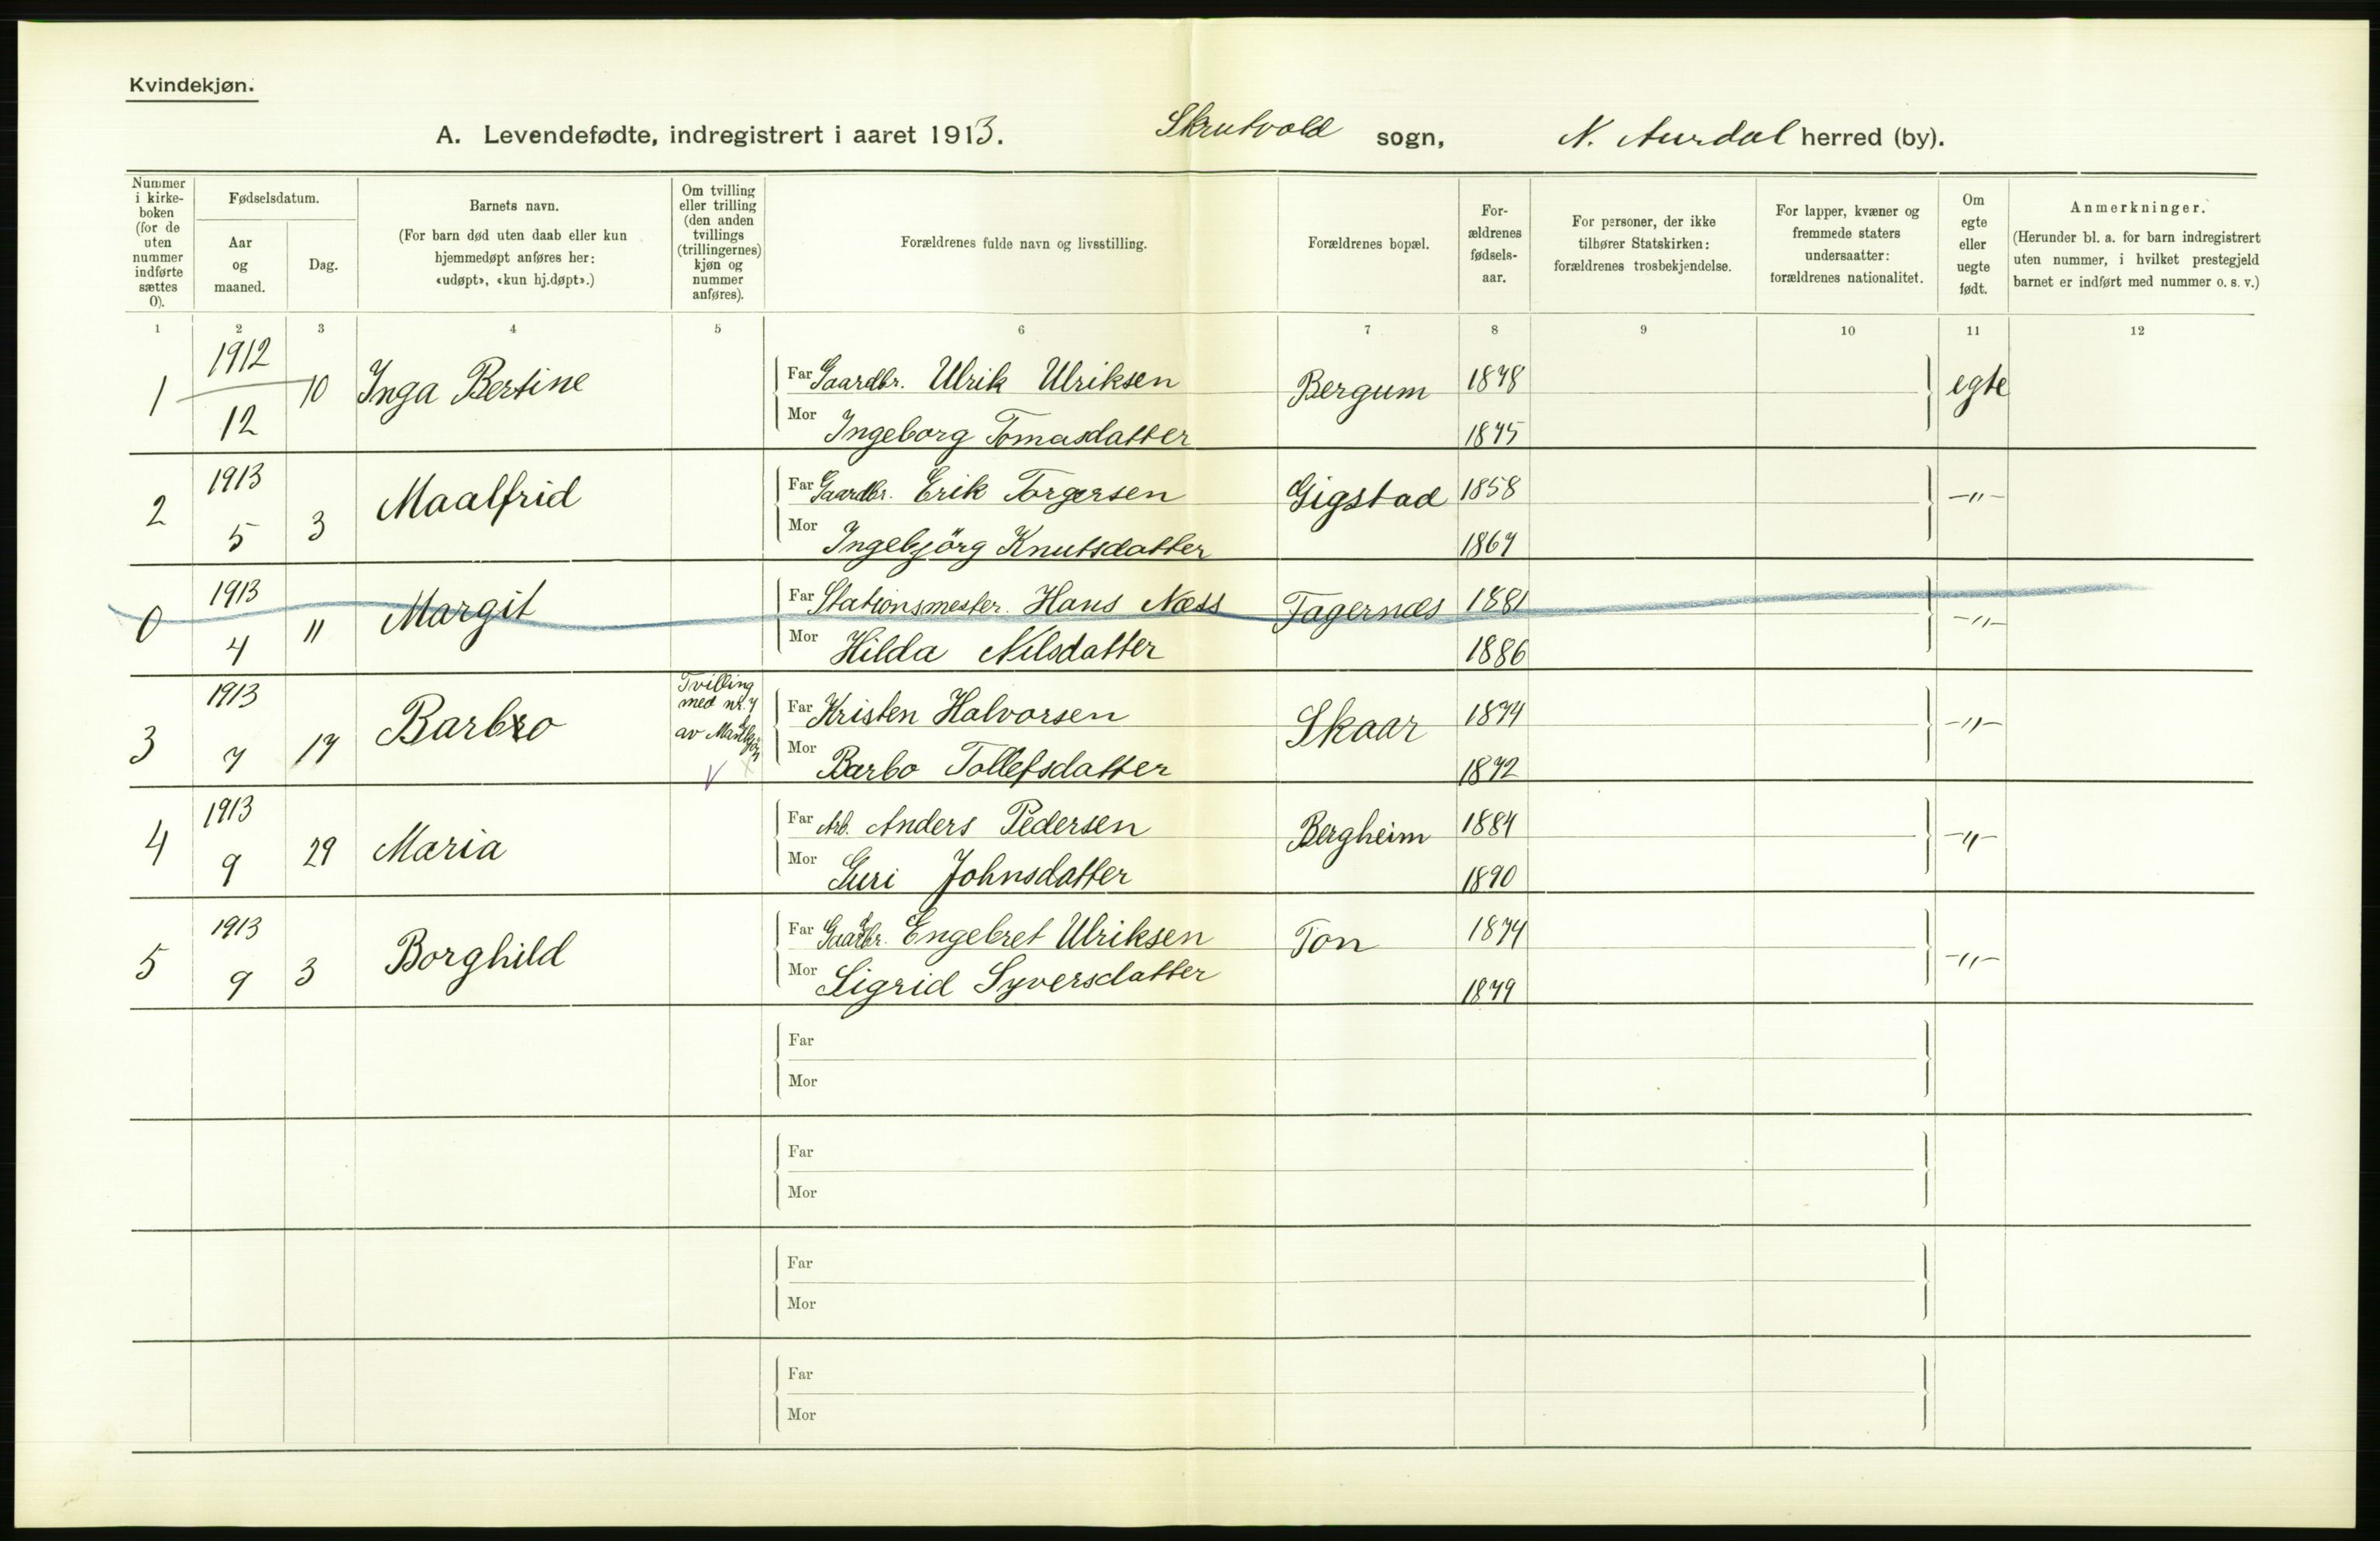 Kvindekjøn.
A. Levendefødte, indregistrert i aaret 1913. Skrutvold sogn, N. Aurdal herred (by).
Nummer i kirke-boken (for de uten nummer indførte sættes 0).
Fødselsdatum.
Aar og maaned.
Dag.
Barnets navn.
(For barn død uten daab eller kun hjemmedøpt anføres her: «udøpt», «kun hj.døpt».)
Om tvilling eller trilling (den anden tvillings (trillingernes) kjøn og nummer anføres).
Forældrenes fulde navn og livsstilling.
Forældrenes bopæl.
For-ældrenes fødsels-aar.
For personer, der ikke tilhører Statskirken: forældrenes trosbekjendelse.
For lapper, kvæner og fremmede staters undersaatter: forældrenes nationalitet.
Om egte eller uegte født.
Anmerkninger.
(Herunder bl. a. for barn indregistrert uten nummer, i hvilket prestegjeld barnet er indført med nummer o. s. v.)
1 2 3 4 5 6 7 8 9 10 11 12
1 1912 12 10 Inga Bertine Far Gaardbr. Ulrik Ulriksen Bergum 1878 egte
Mor Ingeborg Tomasdatter 1875
2 1913 5 3 Maalfrid Far Gaardbr. Erik Torgersen Gigstad 1858 -"-
Mor Ingebjörg Knutsdatter 1867
0 1913 4 11 Margit Far Stationsmester. Hans Næss Fagernæs 1881 -"-
Mor Hilda Nilsdatter 1886
3 1913 7 17 Barbro Tvilling med nr. 7 av Mandkjön Far Kristen Halvorsen Skaar 1874 -"-
Mor Barbo Tollefsdatter 1872
4 1913 9 29 Maria Far Arb. Anders Pedersen Bergheim 1884 -"-
Mor Guri Johnsdatter 1890
5 1913 9 3 Borghild Far Gaardbr. Engebret Ulriksen Ton 1874 -"-
Mor Sigrid Syversdatter 1879
Far
Mor
Far
Mor
Far
Mor
Far
Mor